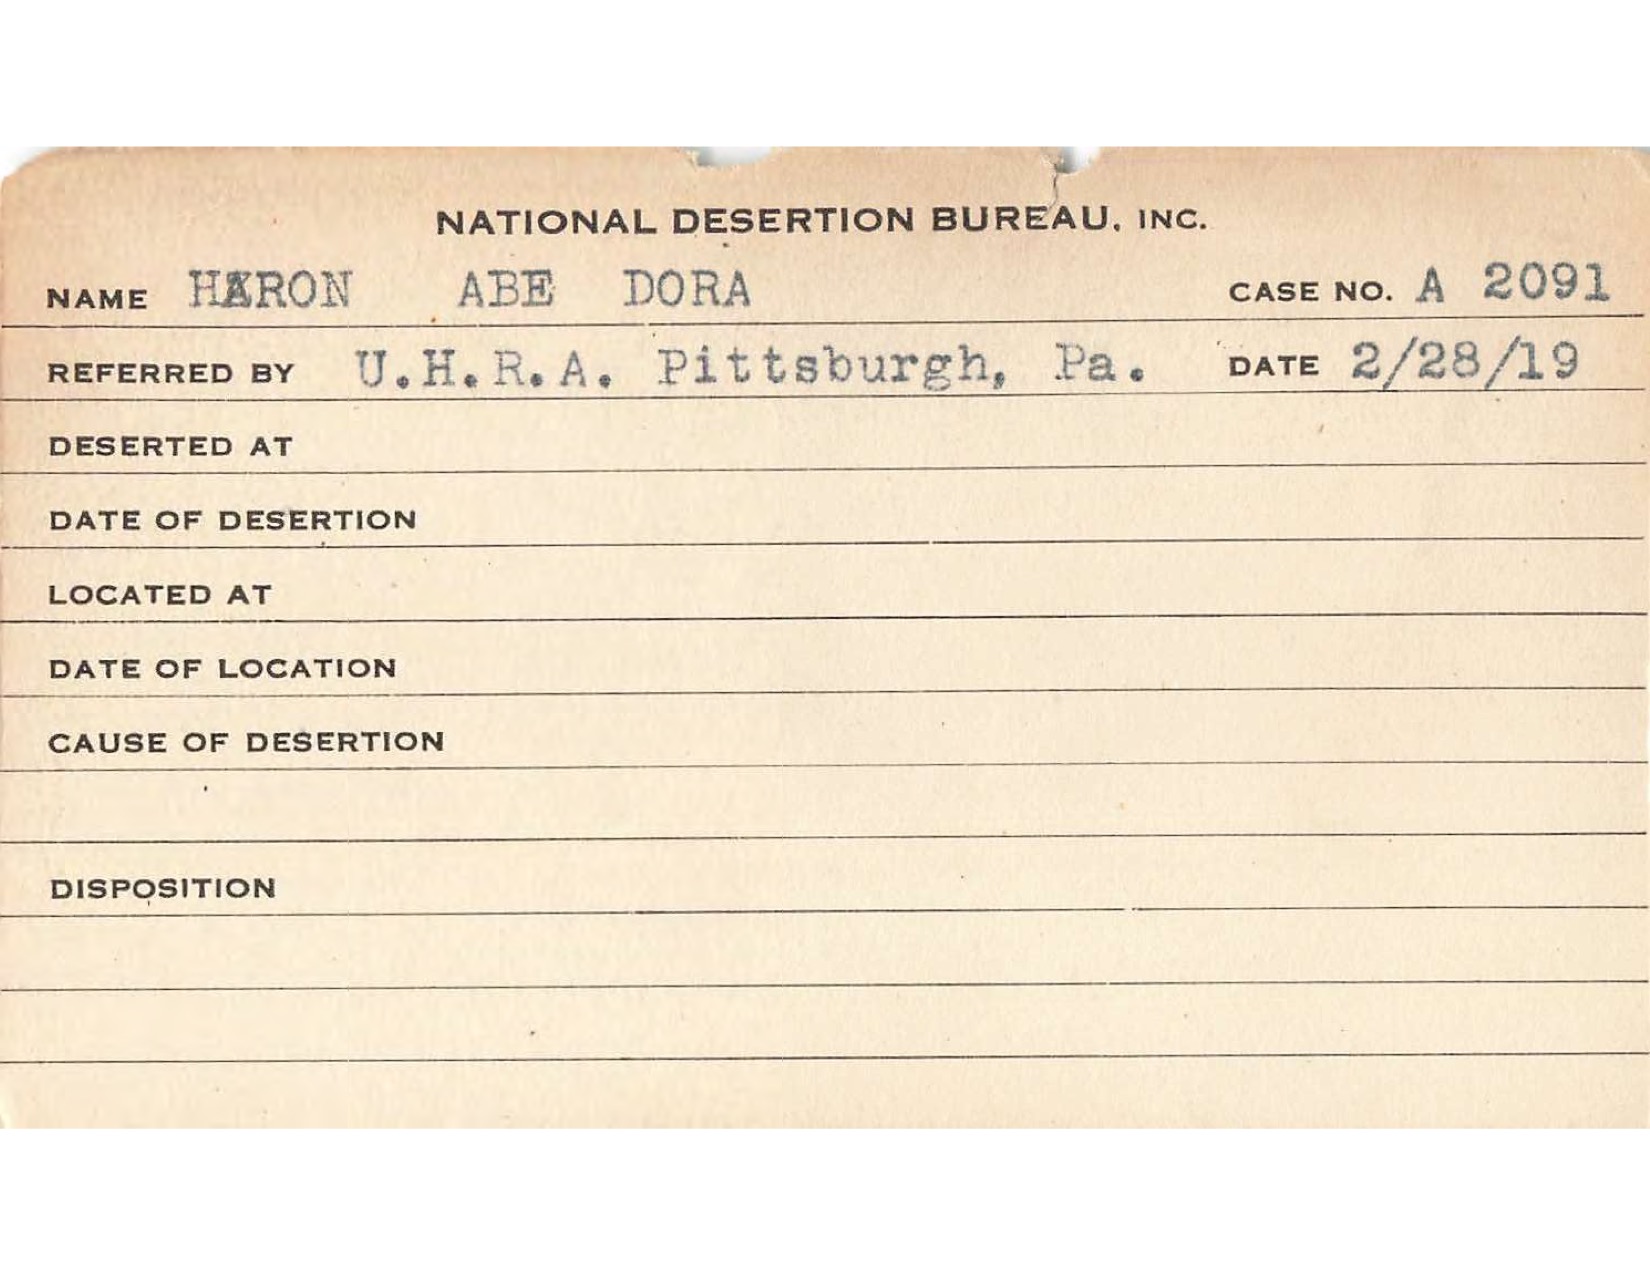 NATIONAL DESERTION BUREAU, INC.
NAME HARON ABE DORA CASE NO. A 2091
REFERRED BY U.H.R.A. Pittsburgh, Pa. DATE 2/28/19
DESERTED AT
DATE OF DESERTION
LOCATED AT
DATE OF LOCATION
CAUSE OF DESERTION
DISPOSITION